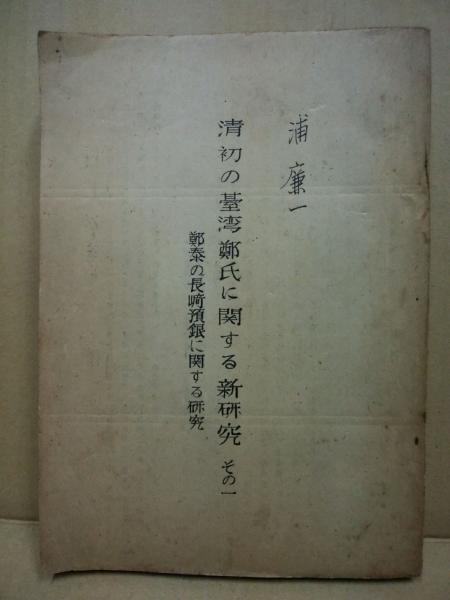 浦廉一
清初の臺湾鄭氏に関する新研究 その一
鄭泰の長崎預銀に関する研究